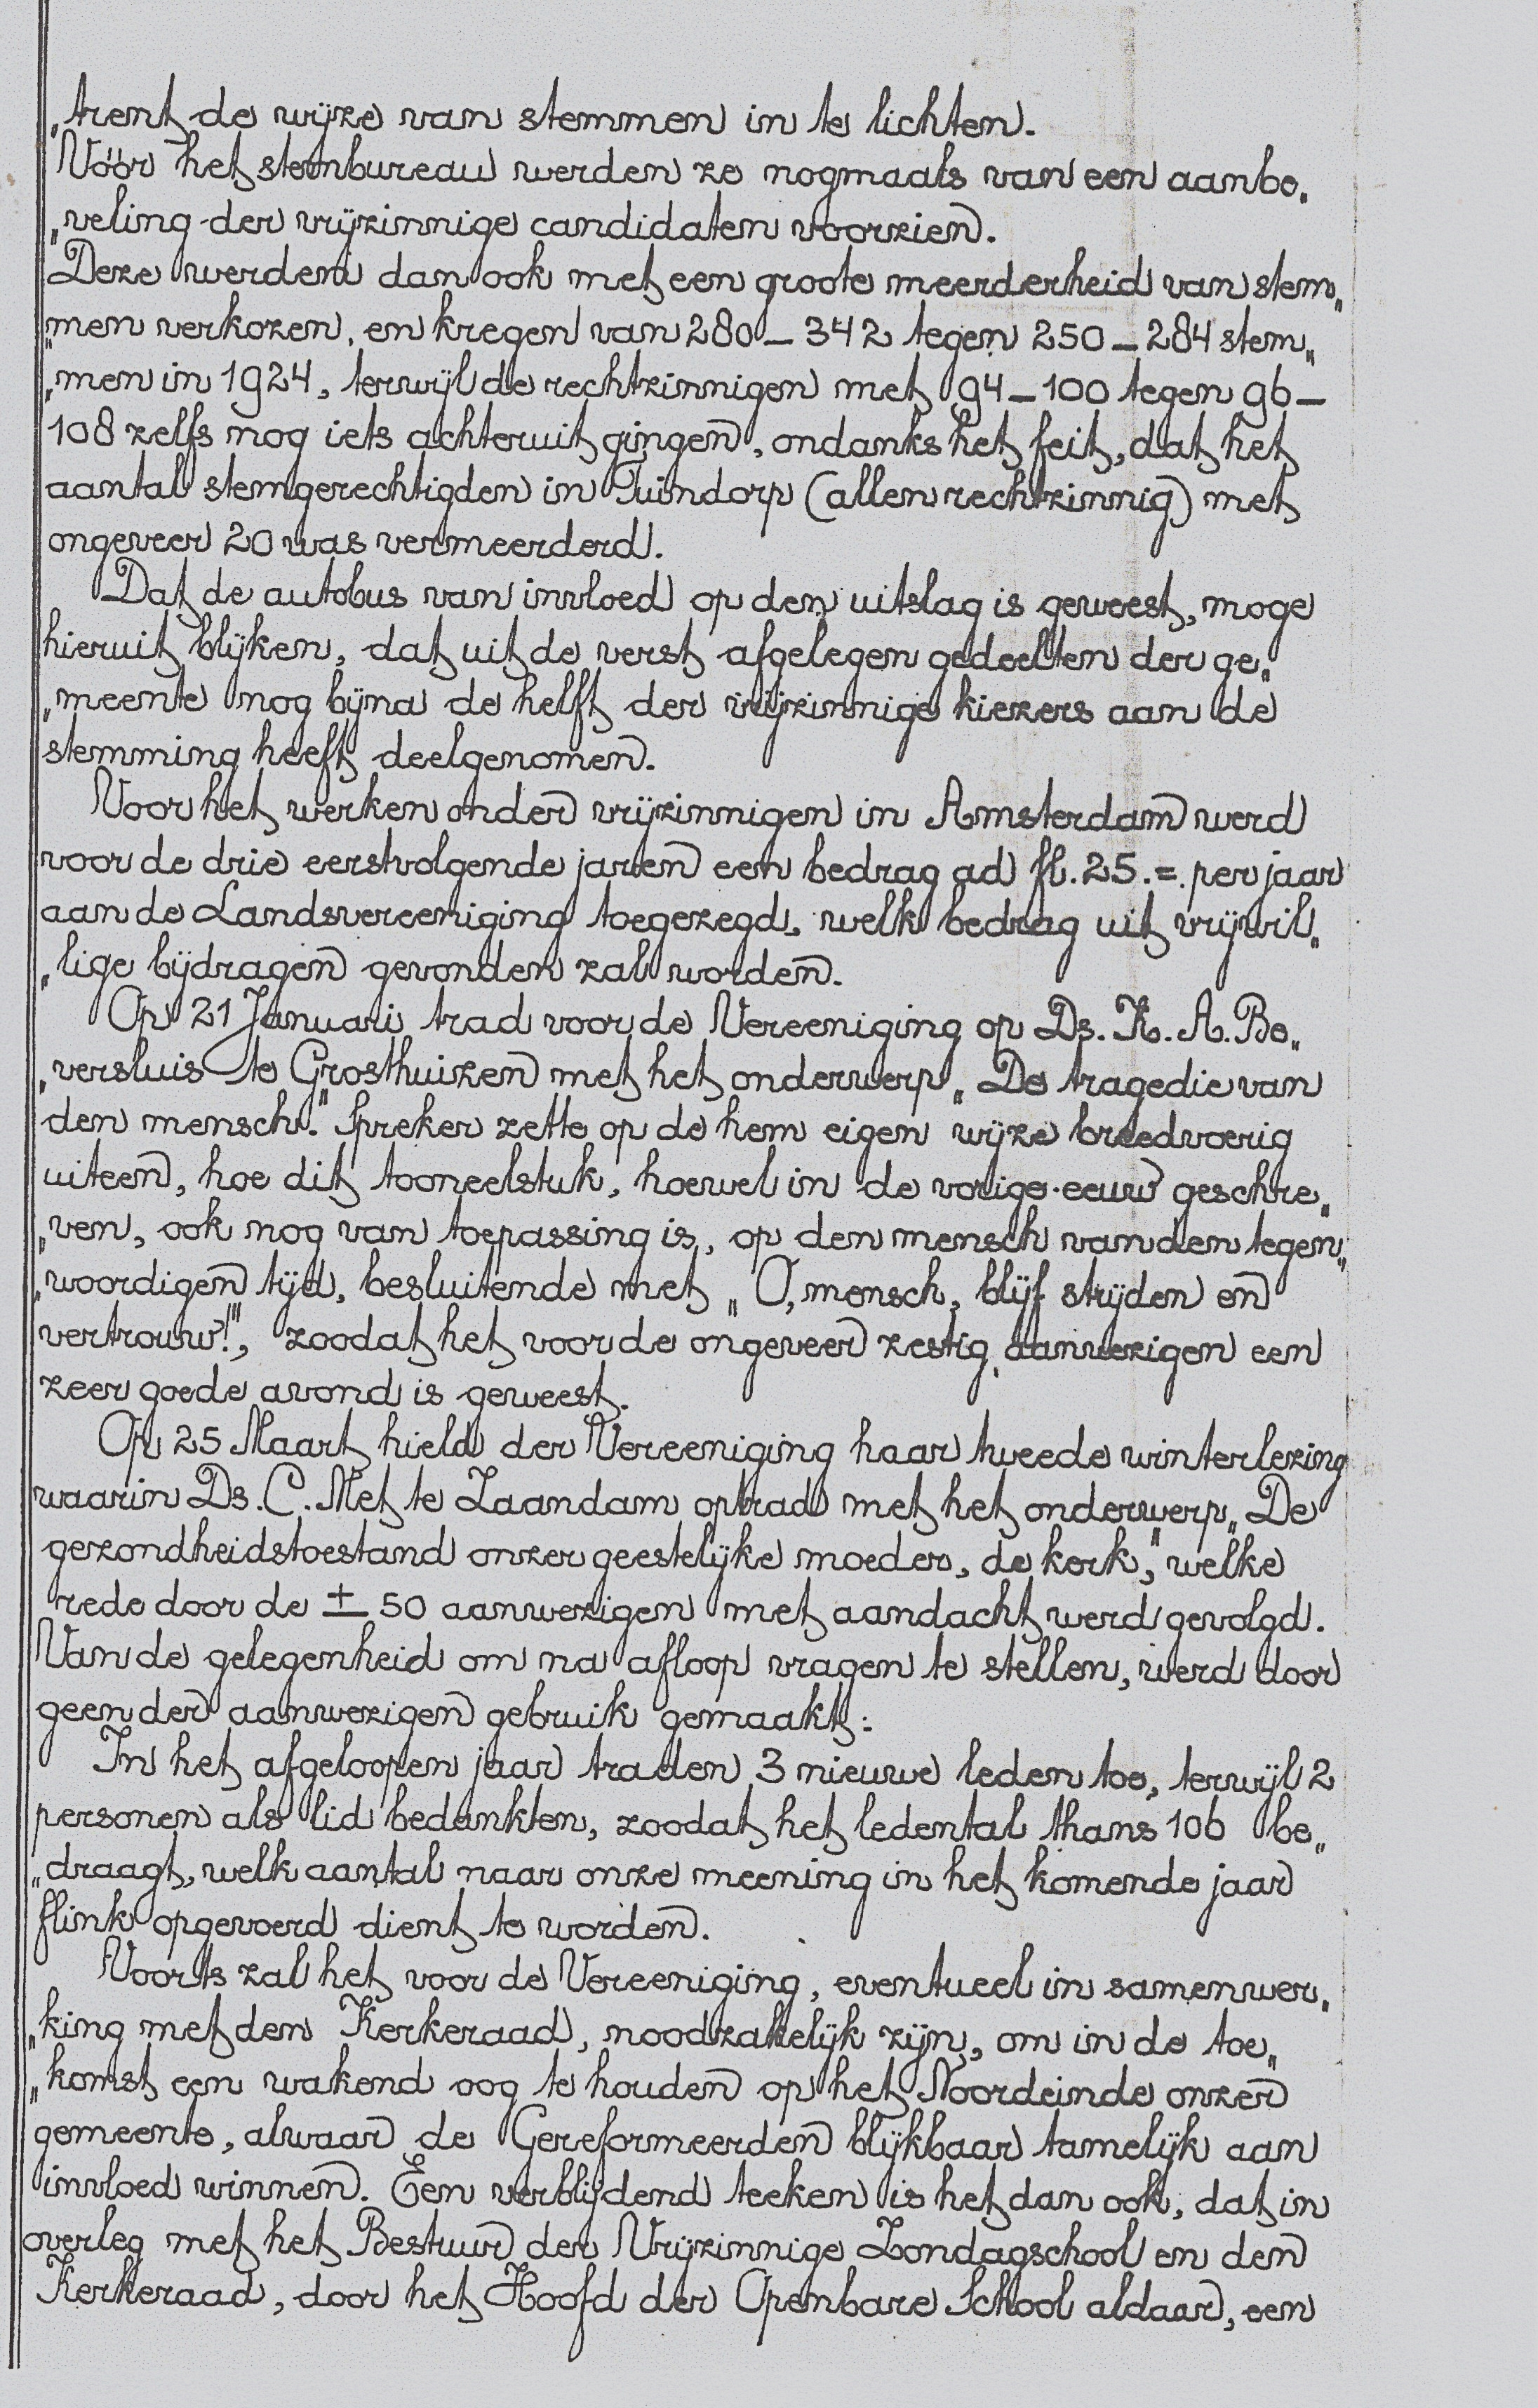 „trent de wijze van stemmen in te lichten.
Vóór het stembureau werden ze nogmaals van een aanbe„
„veling der vrijzinnige candidaten voorzien.
Deze werden dan ook met een groote meerderheid van stem„
„men verkozen, en kregen van 280 – 342 tegen 250 – 284 stem„
„men in 1924, terwijl de rechtzinnigen met 94 – 100 tegen 96 –
108 zelfs nog iets achteruit gingen, ondanks het feit, dat het
aantal stemgerechtigden in Tuindorp (allen rechtzinnig) met
ongeveer 20 was vermeerderd.
Dat de autobus van invloed op den uitslag is geweest, moge
hieruit blijken, dat uit de verst afgelegen gedeelten der ge„
„meente nog bijna de helft der vrijzinnige kiezers aan de
stemming heeft deelgenomen.
Voor het werken onder vrijzinnigen in Amsterdam werd
voor de drie eerstvolgende jaren een bedrag ad fl. 25.=. per jaar
aan de Landsvereeniging toegezegd, welk bedrag uit vrijwil„
„lige bijdragen gevonden zal worden.
Op 21 Januari trad voor de Vereeniging op Ds. K. A. Be„
„versluis te Grosthuizen met het onderwerp „De tragedie van
den mensch." Spreker zette op de hem eigen wijze breedvoerig
uiteen, hoe dit tooneelstuk, hoewel in de vorige eeuw geschre„
„ven, ook nog van toepassing is, op den mensch van den tegen„
„woordigen tijd, besluitende met „O, mensch, blijf strijden en
vertrouw!", zoodat het voor de ongeveer zestig aanwezigen een
zeer goede avond is geweest.
Op 25 Maart hield der Vereeniging haar tweede winterlezing
waarin Ds. C. Met te Zaandam optrad met het onderwerp „De
gezondheidstoestand onzer geestelijke moeder, de kerk," welke
rede door de ± 50 aanwezigen met aandacht werd gevolgd.
Van de gelegenheid om na afloop vragen te stellen, werd door
geen der aanwezigen gebruik gemaakt.
In het afgeloopen jaar traden 3 nieuwe leden toe, terwijl 2
personen als lid bedankten, zoodat het ledental thans 106 be„
„draagt, welk aantal naar onze meening in het komende jaar
flink opgevoerd dient te worden.
Voorts zal het voor de Vereeniging, eventueel in samenwer„
„king met den Kerkeraad, noodzakelijk zijn, om in de toe„
„komst een wakend oog te houden op het Noordeinde onzer
gemeente, alwaar de Gereformeerden blijkbaar tamelijk aan
invloed winnen. Een verblijdend teeken is het dan ook, dat in
overleg met het Bestuur der Vrijzinnige Zondagschool en den
Kerkeraad, door het Hoofd der Openbare School aldaar, een